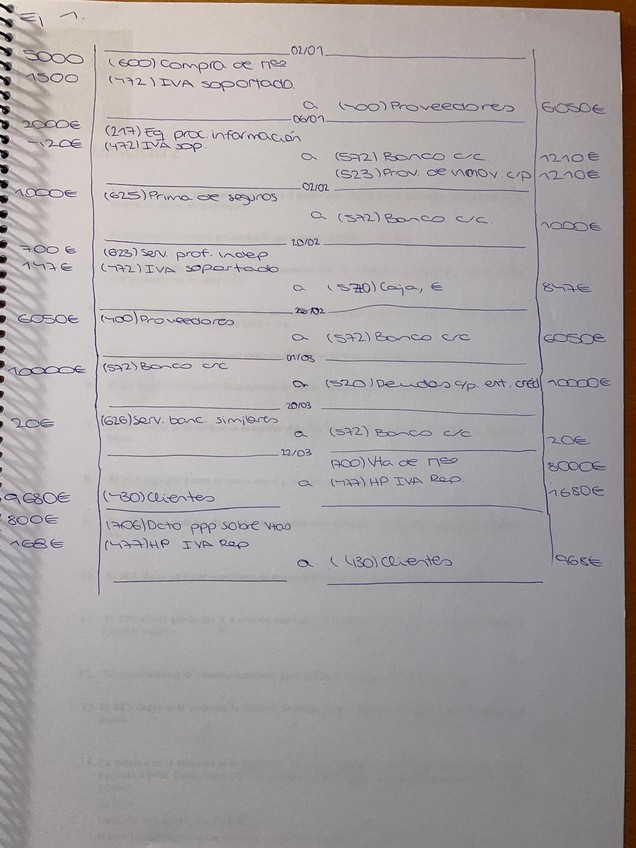 Ej 1.
02/01
5000 (600) Compra de mes
1500 (472) IVA soportado.
a (400) Proveedores 6050€
06/01
2000€ (217) Eq proc. información
420€ (472) IVA sop.
a (572) Banco c/c. 1210€
(523) Prov. de inmov. c/p 1210€
02/02
1000€ (625) Prima de seguros
a (572) Banco c/c. 1000€
20/02
700€ (623) Serv. prof. indep
147€ (472) IVA soportado
a (570) Caja, € 847€
28/02
6050€ (400) Proveedores
a (572) Banco c/c 6050€
01/03
10000€ (572) Banco c/c
a (520) Deudas c/p. ent. créd 10000€
20/03
20€ (626) Serv. banc. similares
a (572) Banco c/c 20€
22/03
700) Vta de mes 8000€
9680€ (430) Clientes a (477) HP IVA Rep. 1680€
800€ (706) Dcto ppp sobre vtas
168€ (477) HP IVA Rep
a (430) Clientes 968€